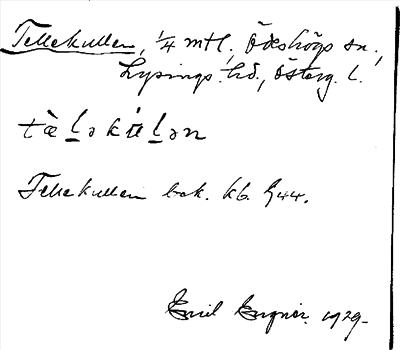 Tellekullen, 1/4 mtl, Ödeshögs sn.,
Lysings hd., Österg. l.
tæ̀ḷəkúḷən
Tellekullen bok. kb. 1744.
Emil Engner. 1929.